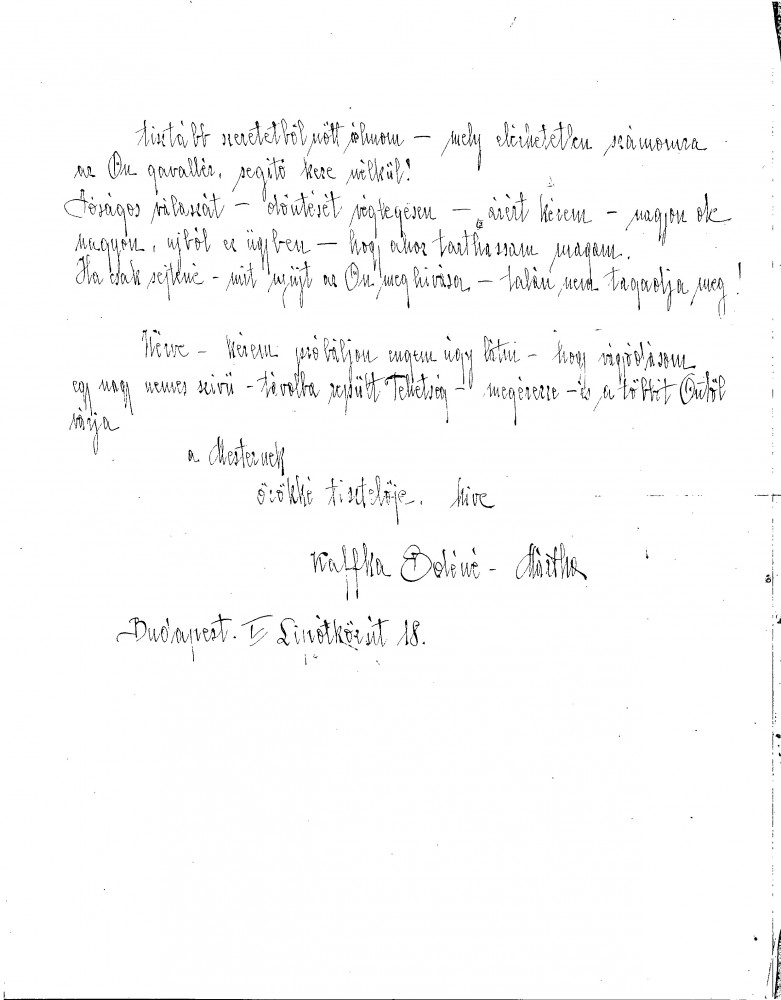 tisztább szeretetből nőtt álmom — mely elérhetetlen számomra
az Ön gavallér, segítő keze nélkül!
Jóságos válaszát — döntését véglegesen — ázért kérem — nagyon
nagyon, ujból ez ügyben — hogy ahoz tarthassam magam.
Ha csak sejtené - mit nyújt az Ön meghivása — talán nem tagadja meg!
kérem próbáljon engem úgy látni — hogy vágyódásom
egy nagy nemes szivü - távolba repült Tehetség — megérezze - és a többit Öntől
várja
a Mesternek
örökké tisztelője, hive
Kaffka - Mártha
Budapest. I. 18.